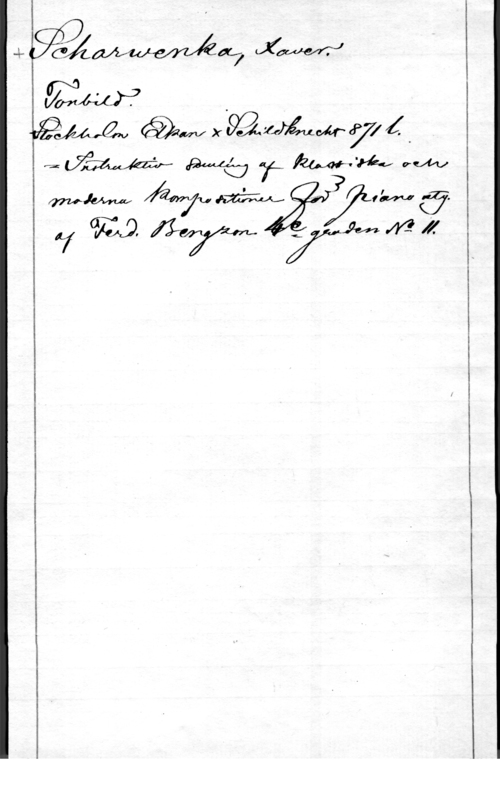 + Scharwenka, Xaver.
Tonbild.
Stockholm Elkan x Schildknecht 871 l.
= Instruktiv samling af klassiska och
moderna kompositioner för piano utg.
af Ferd. Bengzon. 4e graden No 11.
3